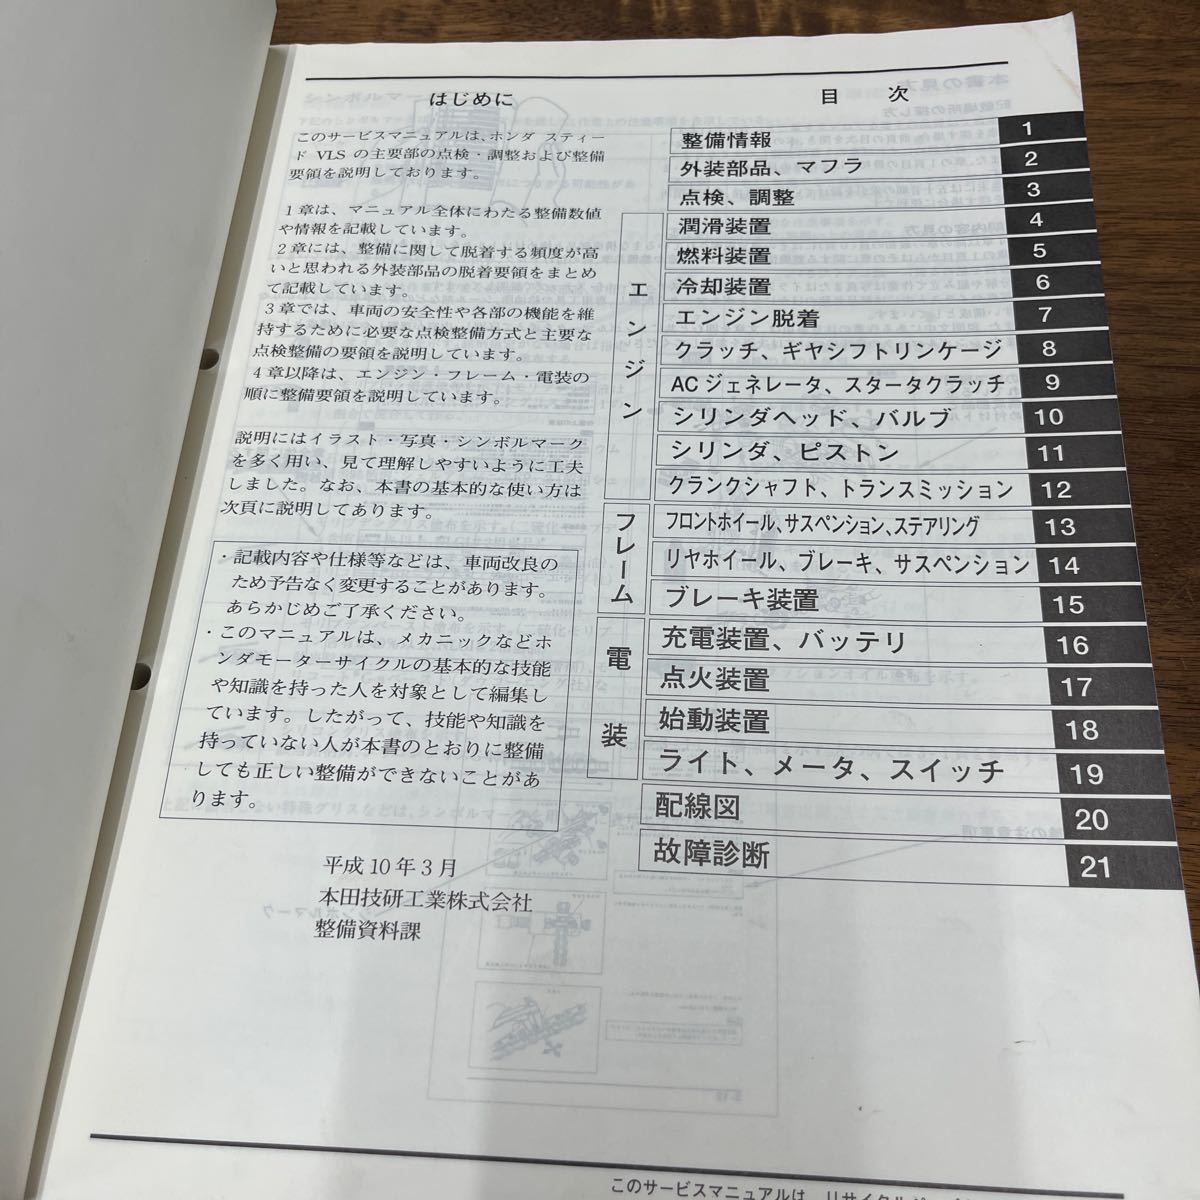 はじめに
このサービスマニュアルは、ホンダ スティー
ド VLS の主要部の点検・調整および整備
要領を説明しております。
1章は、マニュアル全体にわたる整備数値
や情報を記載しています。
2章には、整備に関して脱着する頻度が高
いと思われる外装部品の脱着要領をまとめ
て記載しています。
3章では、車両の安全性や各部の機能を維
持するために必要な点検整備方式と主要な
点検整備の要領を説明しています。
4章以降は、エンジン・フレーム・電装の
順に整備要領を説明しています。
説明にはイラスト・写真・シンボルマーク
を多く用い、見て理解しやすいように工夫
しました。なお、本書の基本的な使い方は
次頁に説明してあります。
・記載内容や仕様等などは、車両改良の
ため予告なく変更することがあります。
あらかじめご了承ください。
・このマニュアルは、メカニックなどホ
ンダモーターサイクルの基本的な技能
や知識を持った人を対象として編集し
ています。したがって、技能や知識を
持っていない人が本書のとおりに整備
しても正しい整備ができないことがあ
ります。
平成10年3月
本田技研工業株式会社
整備資料課
目 次
整備情報 1
外装部品、マフラ 2
点検、調整 3
エンジン
潤滑装置 4
燃料装置 5
冷却装置 6
エンジン脱着 7
クラッチ、ギヤシフトリンケージ 8
ACジェネレータ、スタータクラッチ 9
シリンダヘッド、バルブ 10
シリンダ、ピストン 11
クランクシャフト、トランスミッション 12
フレーム
フロントホイール、サスペンション、ステアリング 13
リヤホイール、ブレーキ、サスペンション 14
ブレーキ装置 15
電装
充電装置、バッテリ 16
点火装置 17
始動装置 18
ライト、メータ、スイッチ 19
配線図 20
故障診断 21
このサービスマニュアルは、リサイクル